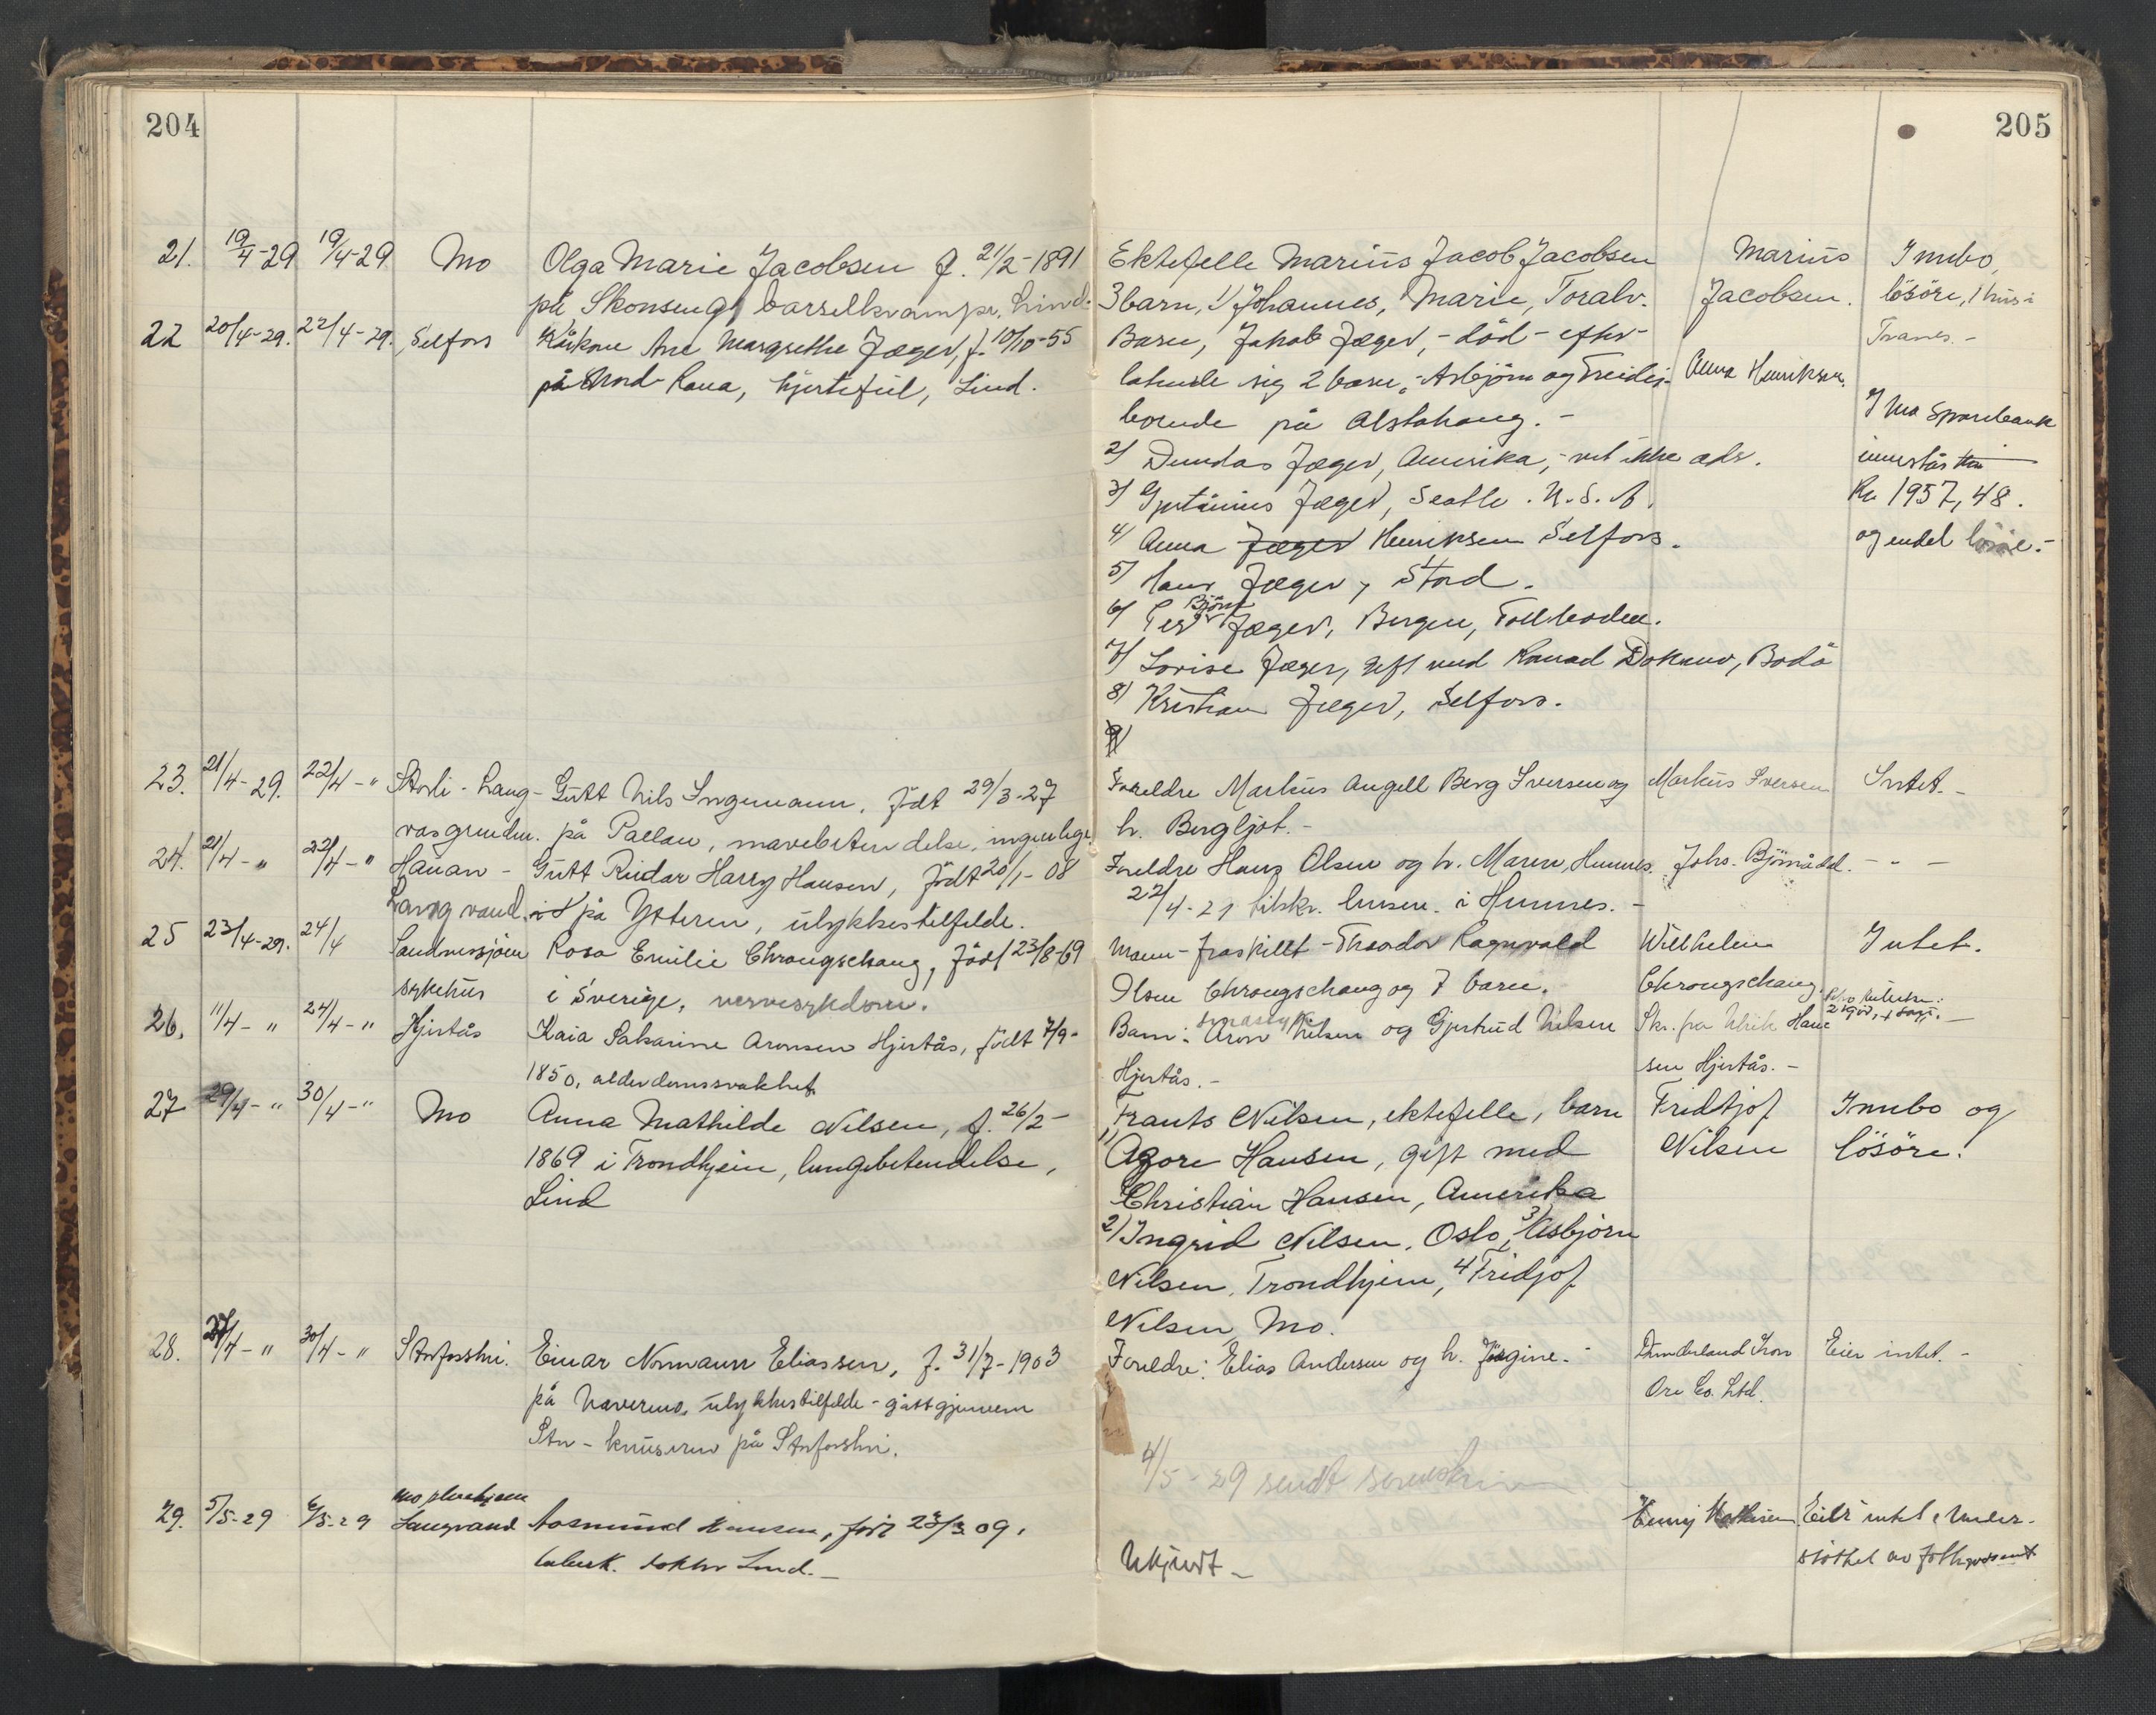 204
205
21. 19/4-29 19/4-29 Mo Olga Marie Jacobsen f. 21/2-1891 Ektefelle Marius Jacob Jacobsen Marius Innbo,
på Skonseng, barselkrampe, Lind. 3 barn, 1/ Johannes, Marie, Toralv. Jacobsen. lösöre, 1 hus i
22 20/4-29. 22/4-29. Selfors Kårkone Ane Margrethe Jæger, f. 10/10-55 Barn, Jakob Jæger, - död - efter- Tranes. -
på Nord-Rana, hjertefeil, Lind. latende sig 2 barn, - Asbjörn og Anna Henriksen.
boende på Alstahaug. - I Mo Sparebank
2/ Dundas Jæger, Amerika, - vet ikke adr. innestår
3/ Jæger, Seatle. U.S.A. Kr. 1957,48.
4/ Anna Jæger Henriksen Selfors. og endel lösöre. -
5/ Hans Jæger, Stord.
6/ Björn Jæger, Bergen, Tollboden.
7/ Lovise Jæger, gift med Konrad, Bodö
8/ Kristian Jæger, Selfors.
9/
23. 21/4-29. 22/4-" Storli - Lang- Gutt Nils Ingemann, födt 29/3-27 Foreldre Markus Angell Berg Iversen og Markus Iversen Intet. -
vasgrunden. på Pallau, mavebetendelse, ingen lege h. Bergljot. -
24. 21/4-" 22/4-" Hauan - Gutt Reidar Harry Hansen, födt 20/1-08 Foreldre Hans Olsen og h. Maren, Hemnes. Johs. Björnådal. - " -
Langvand. på Ytteren, ulykkestilfelde. 22/4-29 tilskr. lensm. i Hemnes. -
25 23/4-29. 24/4 Sandnessjöen Rosa Emilie Chrongschaug, födt 23/8-69 Mann - fraskillt - Theodor Ragnvald Wilhelm Intet.
sykehus i Sverige, nervesykdom. Olsen Chrongschaug og 7 barn. Chrongschaug.
26. 11/4-" 24/4-" Hjertås Kaia Sakarine Aronsen Hjertås, födt 7/9- Barn: Aron Nilsen og Gjertrud Nilsen Skr. fra Ulrik Han-
1850, alderdomssvakhet. Hjertås. - sen Hjertås. -
27 29/4-" 30/4-" Mo Anna Mathilde Nilsen, f. 26/2- Frants Nilsen, ektefelle, barn Fridtjof Innbo og
1869 i Trondhjem, lungebetendelse, 1/ Agore Hansen, gift med Nilsen lösöre.
Lind Christian Hansen, Amerika
2/ Ingrid Nilsen, Oslo, 3/ Asbjörn
Nilsen, Trondhjem, 4 Fridjof
Nilsen Mo.
28. 27/4-" 30/4-" Storforshei. Einar Normann Eliassen, f. 31/7-1903 Foreldre: Elias Andersen og h. Jörgine. - Dunderland Iron Eier intet. -
på Nævermo, ulykkestilfelde - gått gjennem Ore Co. Ltd.
Sten-knuseren på Storforshei.
4/5-29 sendt
Mo pleiehjem
29. 5/5-29 6/5-29 Langvand Aasmund Hansen, født 23/3 09. Eier intet. Under-
tuberk. doktor Lind. - Ukjendt -